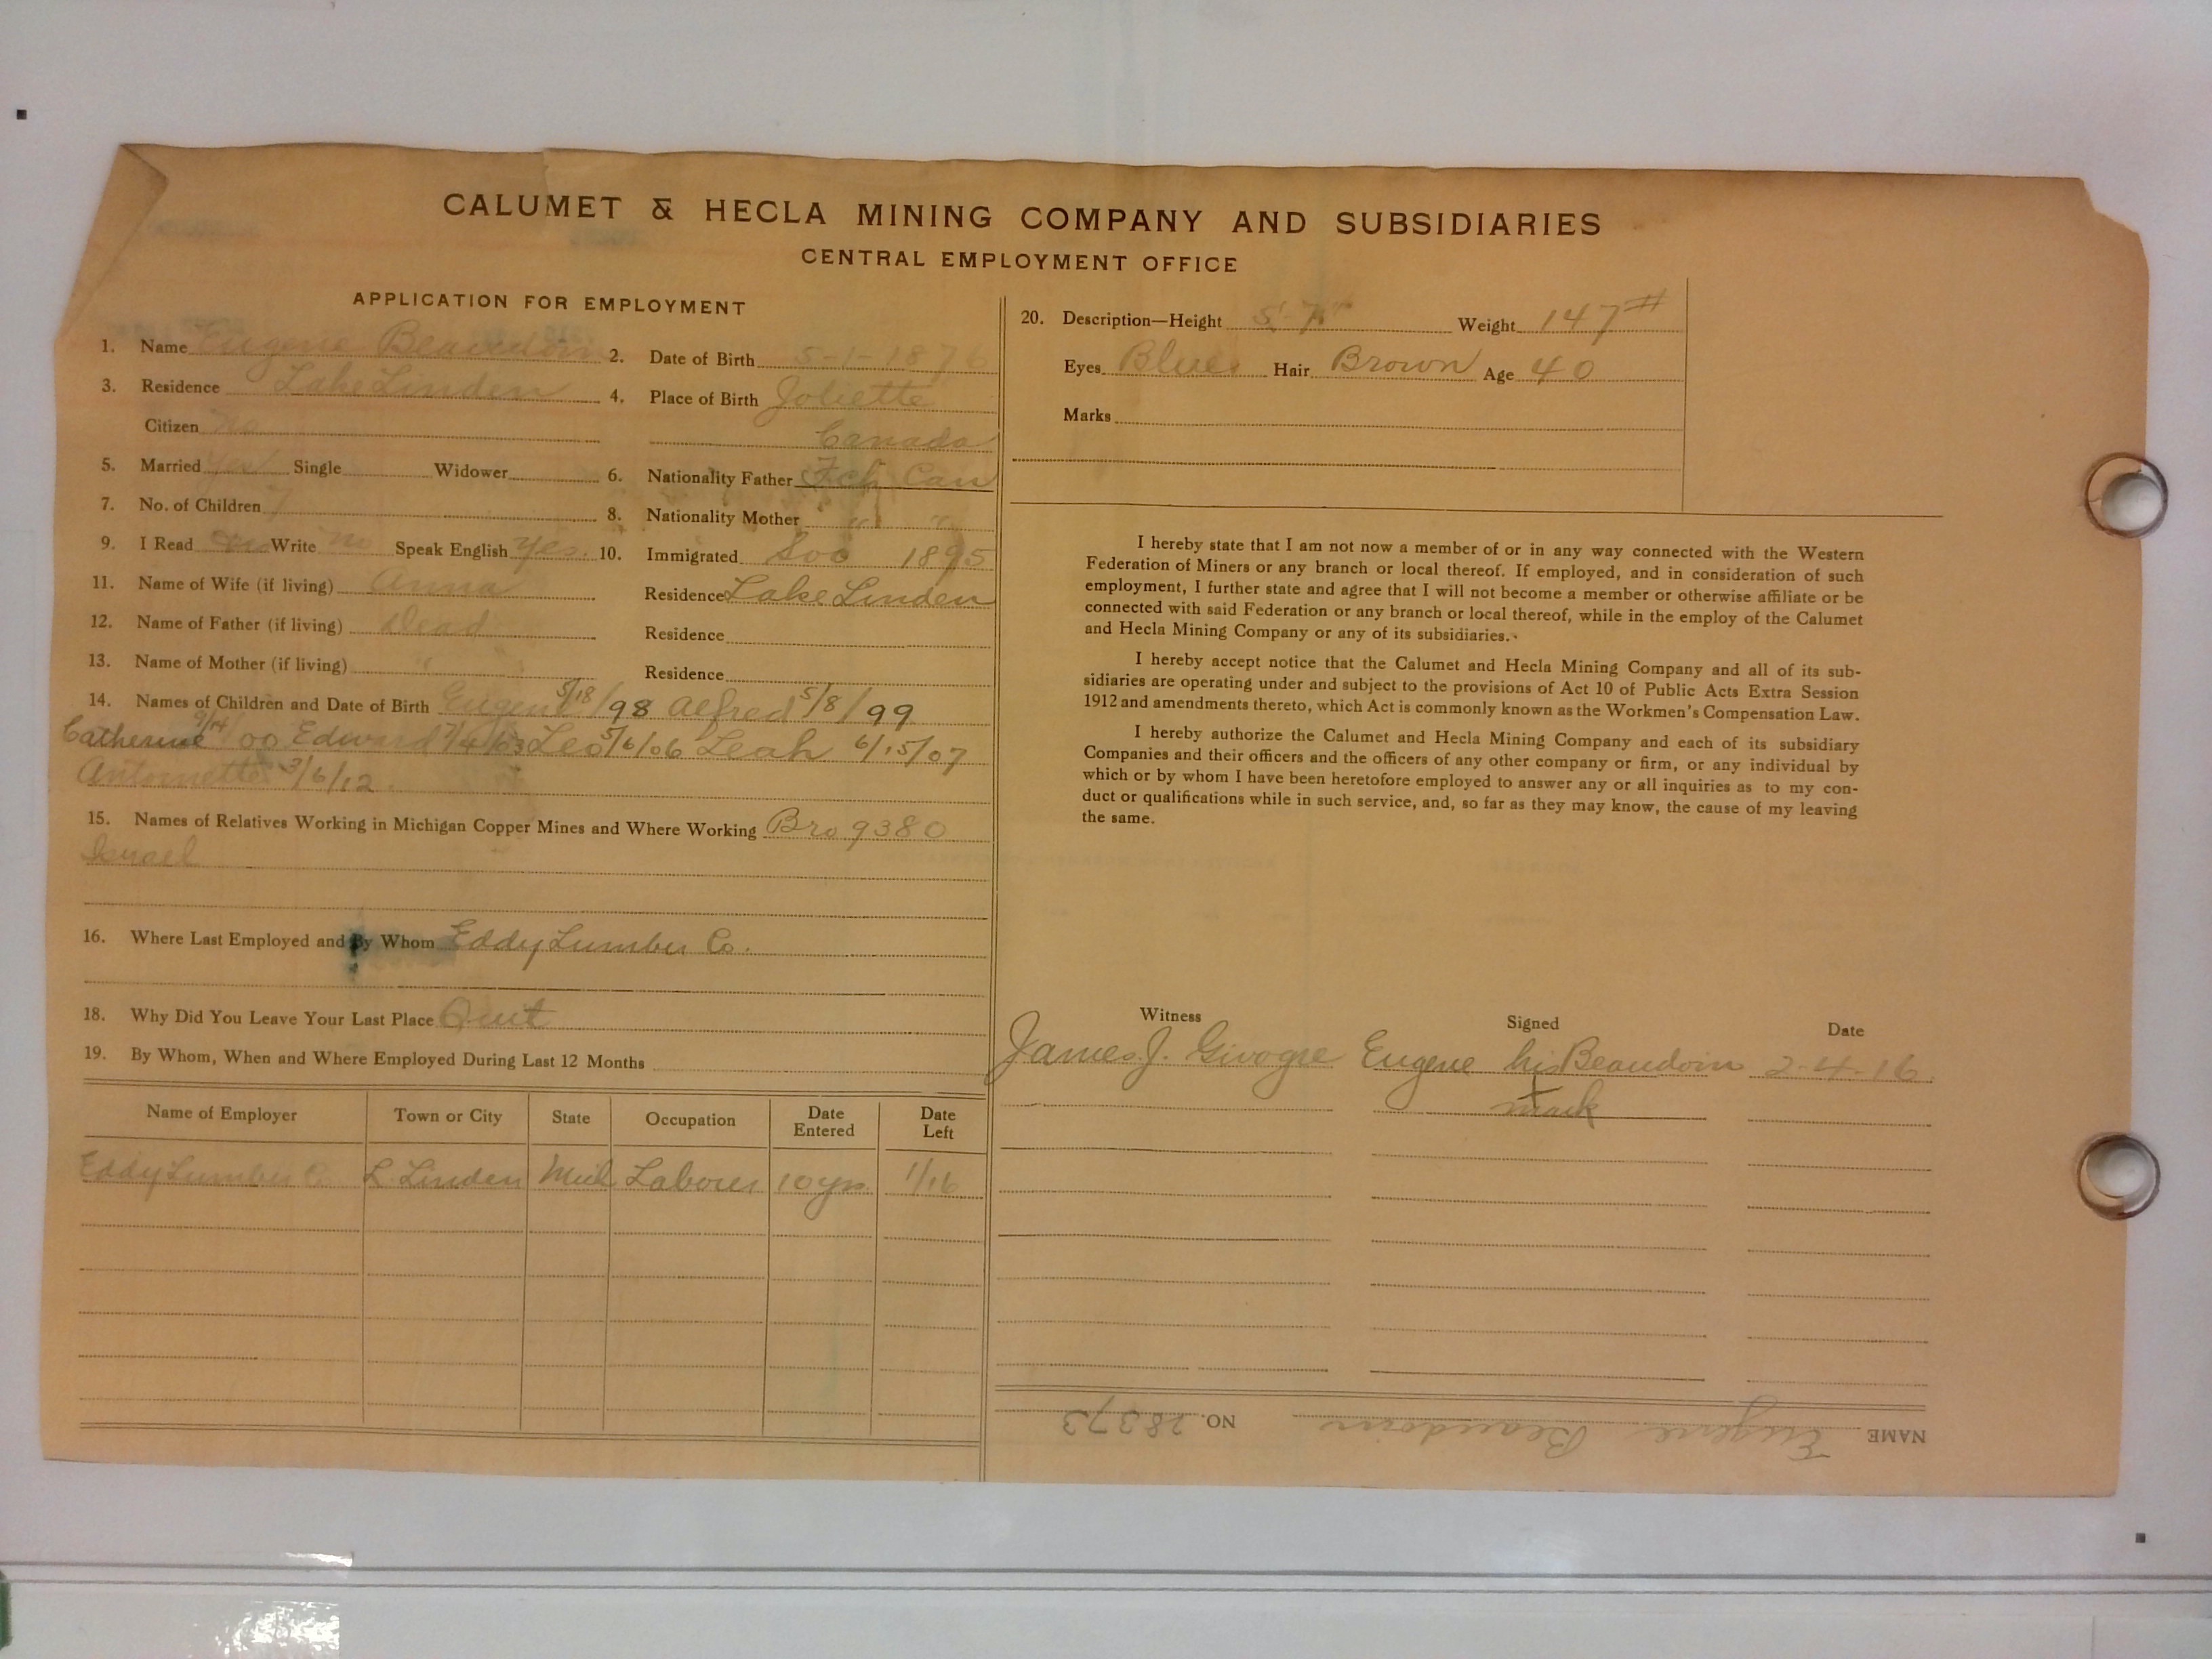 CALUMET & HECLA MINING COMPANY AND SUBSIDIARIES
CENTRAL EMPLOYMENT OFFICE
APPLICATION FOR EMPLOYMENT
1. Name Eugene Beaudoin 2. Date of Birth 5-1-1876
3. Residence Lake Linden 4. Place of Birth Joliette
Citizen No Canada
5. Married Yes Single Widower 6. Nationality Father Fch Can
7. No. of Children 7 8. Nationality Mother " "
9. I Read Write no Speak English Yes. 10. Immigrated Soo 1895
11. Name of Wife (if living) Anna Residence Lake Linden
12. Name of Father (if living) Dead Residence
13. Name of Mother (if living) " Residence
14. Names of Children and Date of Birth Eugene 5/18/98 Alfred 5/8/99
Catherine 9/14/00 Edward 7/4/03 Leo 5/6/06 Leah 6/15/07
Antoinette 3/6/12.
15. Names of Relatives Working in Michigan Copper Mines and Where Working Bro 9380
Israel
16. Where Last Employed and By Whom Eddy Lumber Co.
18. Why Did You Leave Your Last Place Quit
19. By Whom, When and Where Employed During Last 12 Months
Name of Employer Town or City State Occupation Date Entered Date Left
Eddy Lumber Co L. Linden Mich Laborer 10 yrs. 1/16
20. Description—Height 5'-7" Weight 147#
Eyes Blue Hair Brown Age 40
Marks
I hereby state that I am not now a member of or in any way connected with the Western
Federation of Miners or any branch or local thereof. If employed, and in consideration of such
employment, I further state and agree that I will not become a member or otherwise affiliate or be
connected with said Federation or any branch or local thereof, while in the employ of the Calumet
and Hecla Mining Company or any of its subsidiaries.
I hereby accept notice that the Calumet and Hecla Mining Company and all of its sub-
sidiaries are operating under and subject to the provisions of Act 10 of Public Acts Extra Session
1912 and amendments thereto, which Act is commonly known as the Workmen's Compensation Law.
I hereby authorize the Calumet and Hecla Mining Company and each of its subsidiary
Companies and their officers and the officers of any other company or firm, or any individual by
which or by whom I have been heretofore employed to answer any or all inquiries as to my con-
duct or qualifications while in such service, and, so far as they may know, the cause of my leaving
the same.
Witness Signed Date
James J. Givogre Eugene his Beaudoin 2-4-16
x
mark
NAME Eugene Beaudoin NO. 28373